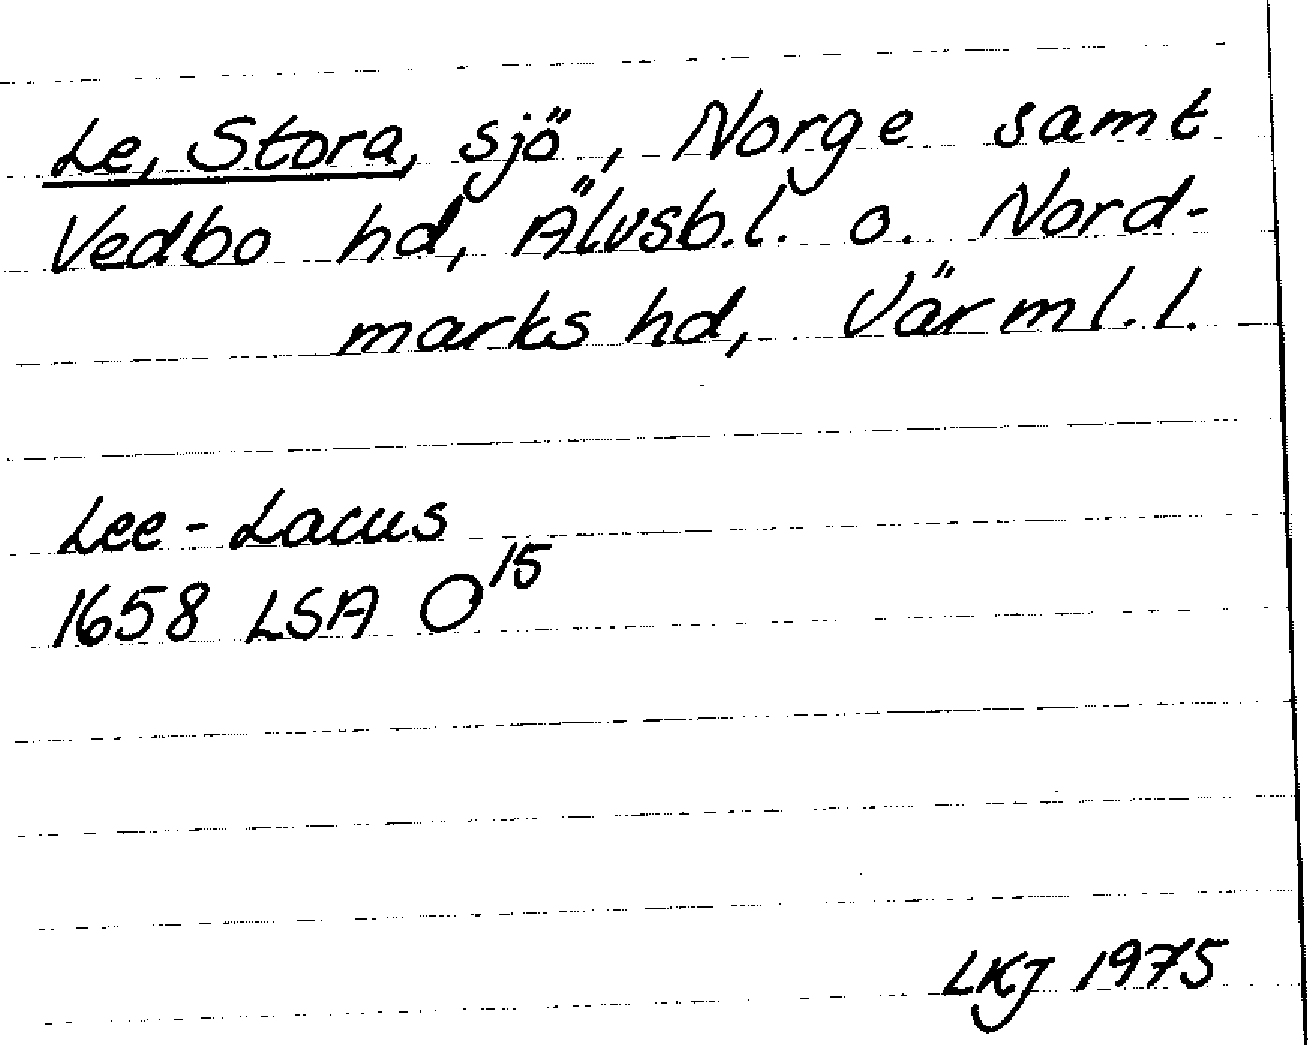 Le, Stora, sjö, Norge samt
Vedbo hd, Älvsb.l. o. Nord-
marks hd, Värml.l.
Lee-Lacus
1658 LSA O15
LKJ 1975